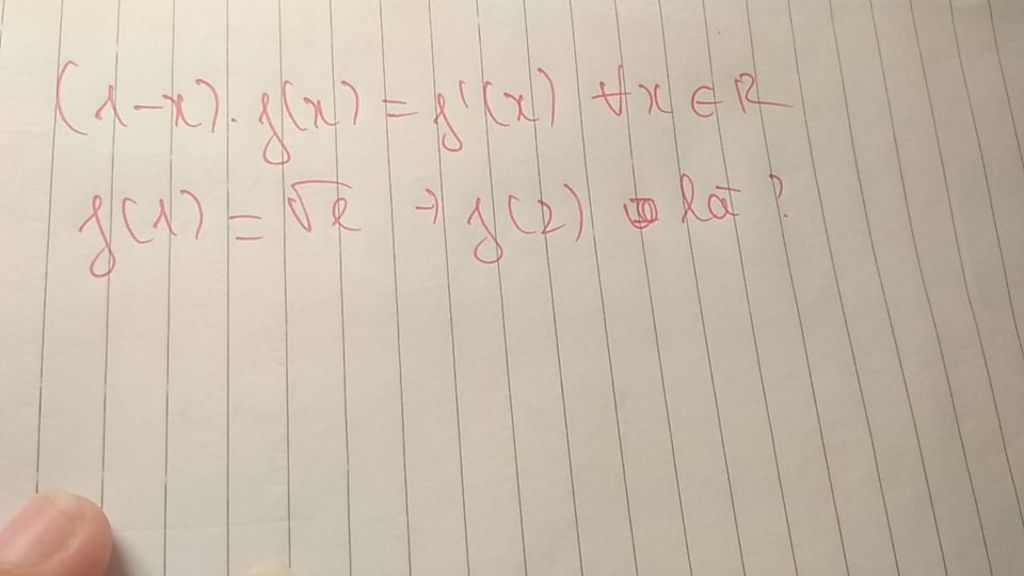 (1-x).f(x) = f'(x) ∀x ∈ R
f(1) = √2 → f(2) là ?